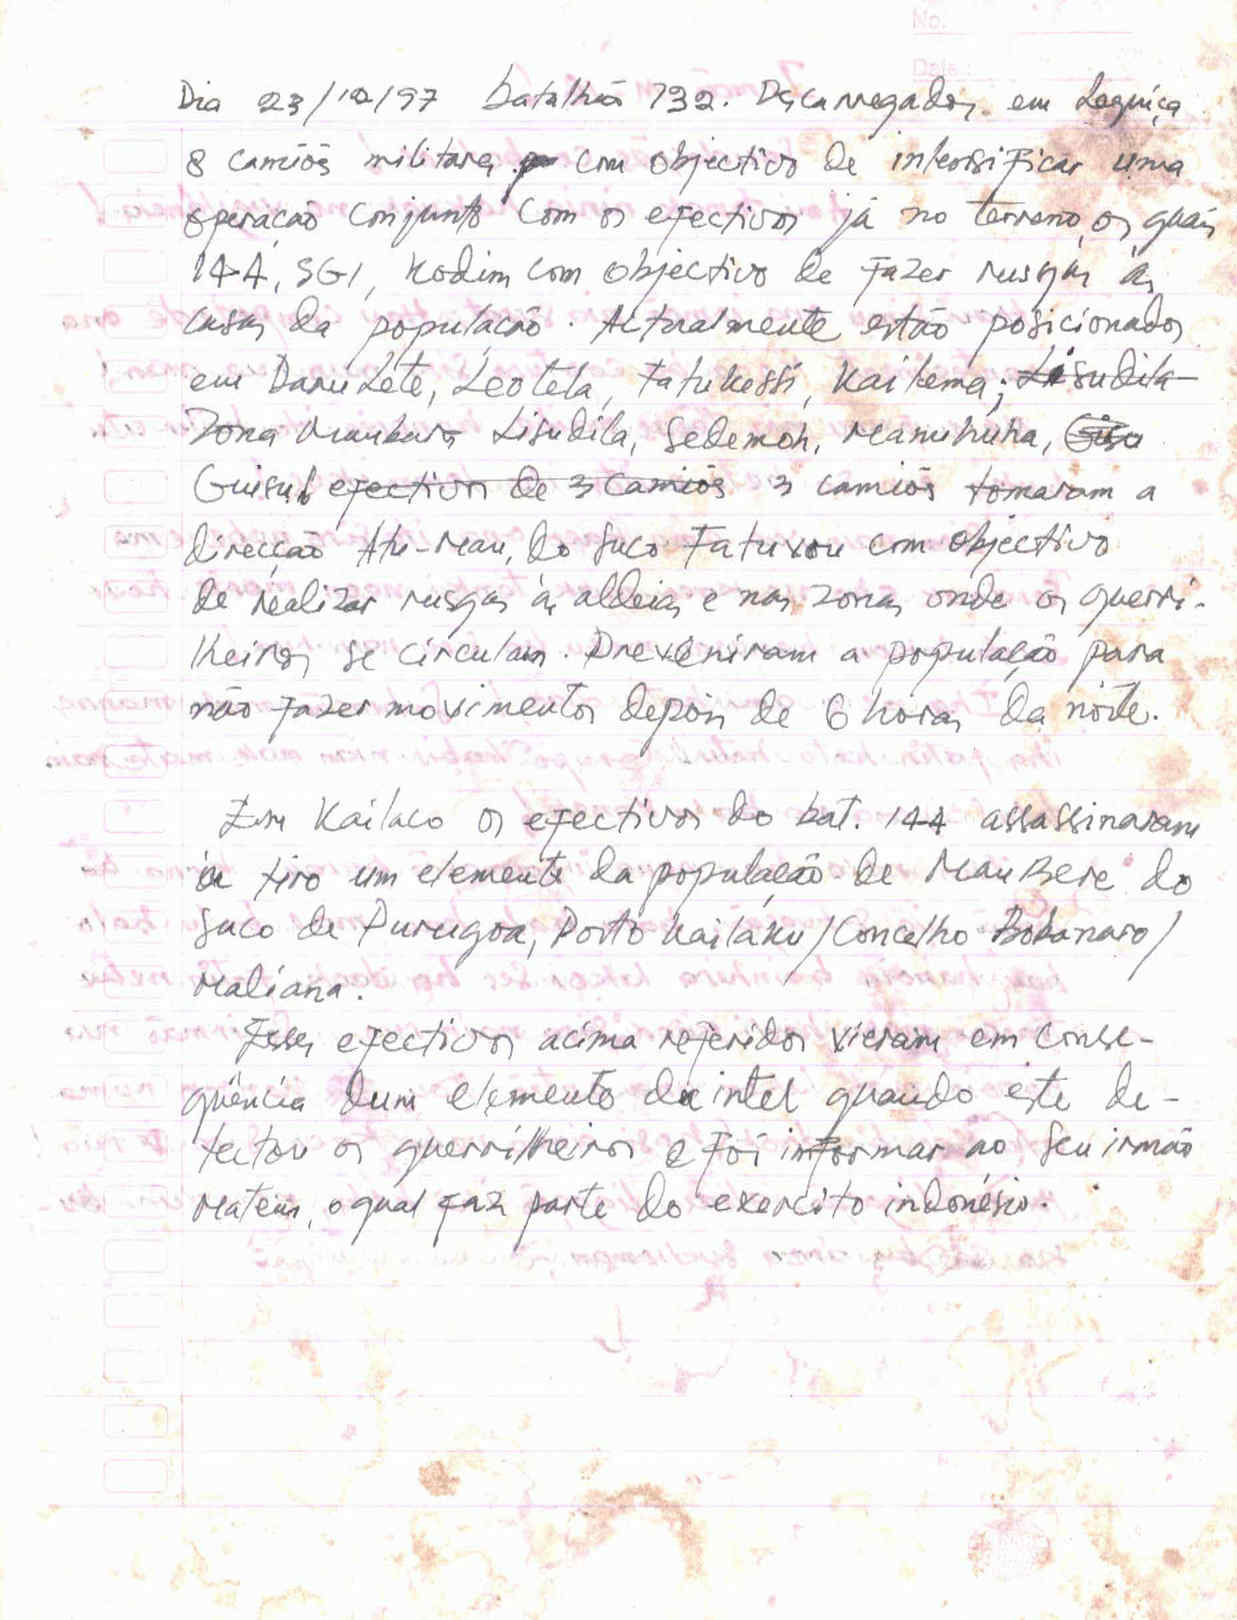 No.
Date:
Dia 23/10/97 batalhão 732. Descarregados em Lequiça
8 camiões militares com objectivo de intensificar uma
operação conjunto com os efectivos já no terreno, os quais
144, SGI, Kodim com objectivo de fazer rusgas às
casas da população. Actualmente estão posicionados
em DaruLete, Leotela, Fatukessi, Kaikema; Lisudila
Zona Maubara Lisudila, Gedemoh, Manuhuha,
Guisu efectivos de 3 camiõs 3 camiõs tomaram a
direcção Atu-Mau, do Suco Fatuvou com objectivo
de realizar rusgas às aldeias e nas zonas onde os guerri-
lheiros se circulam. Preveniram a população para
não fazer movimentos depois de 6 horas da noite.
Em Kailaco os efectivos do bat. 144 assassinaram
a tiro um elemento da população de MauBere do
Suco de Purugoa, Posto Kailaku/Concelho Bobonaro/
Maliana.
Esses efectivos acima referidos vieram em conse-
quência dum elemento da intel quando este de-
tectou os guerrilheiros e foi informar ao seu irmão
Mateus, o qual faz parte do exercito indonésio.